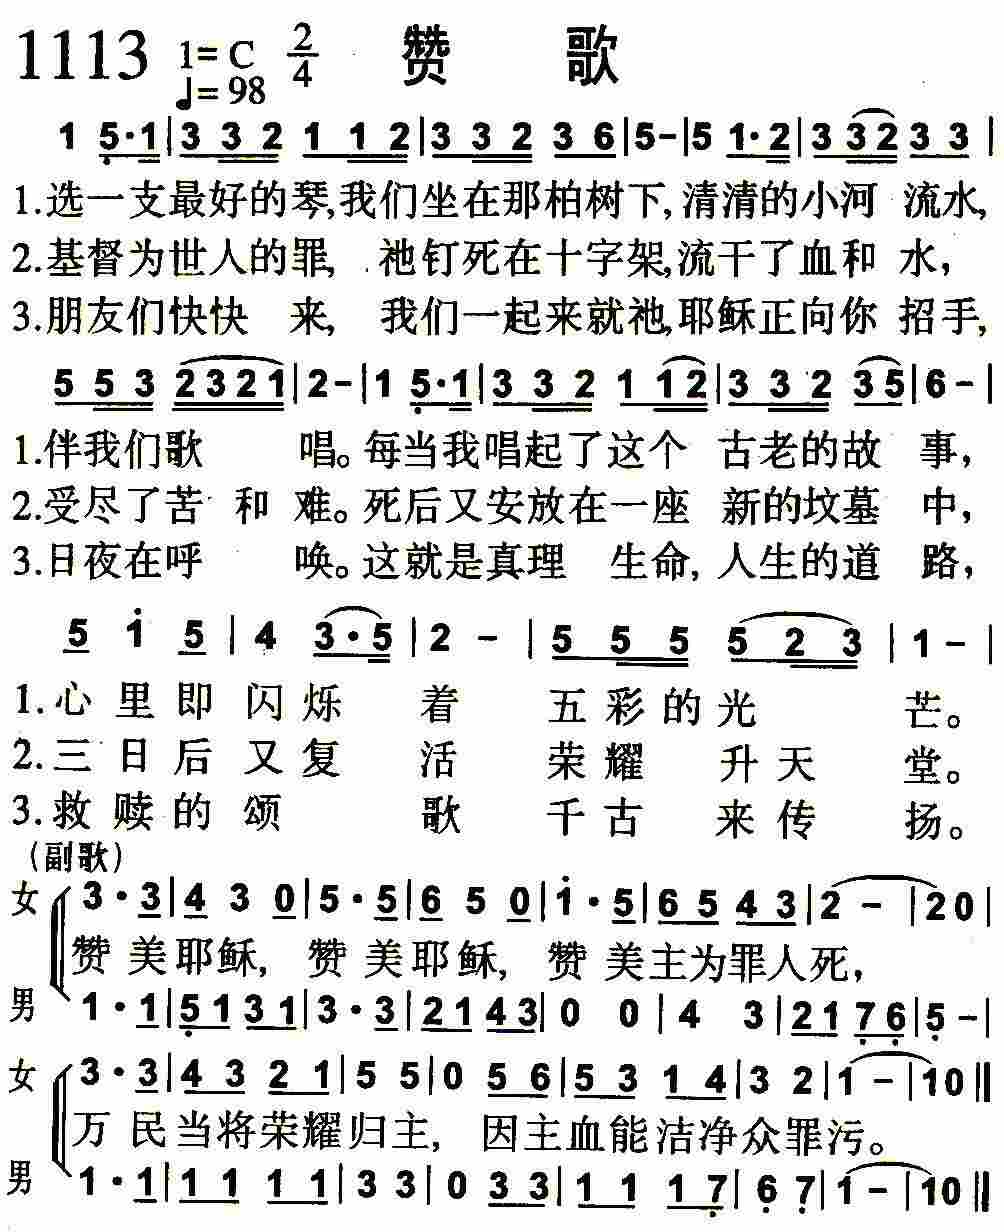 1113 1=C 2/4 赞 歌
♩=98
1 5·1|3 3 2 1 1 2|3 3 2 3 6|5-|5 1·2|3 3 2 3 3|
1.选一支最好的琴,我们坐在那柏树下,清清的小河 流水,
2.基督为世人的罪, 祂钉死在十字架,流干了血和 水,
3.朋友们快快 来, 我们一起来就祂,耶稣正向你 招手,
5 5 3 2321|2-|1 5·1|3 3 2 1 12|3 3 2 35|6-|
1.伴我们歌 唱。每当我唱起了这个 古老的故 事,
2.受尽了苦 和 难。死后又安放在一座 新的坟墓 中,
3.日夜在呼 唤。这就是真理 生命, 人生的道 路,
5 1 5|4 3·5|2 -|5 5 5 5 2 3|1-|
1.心里即闪烁 着 五彩的光 芒。
2.三日后又复 活 荣耀 升天 堂。
3.救赎的颂 歌 千古 来传 扬。
(副歌)
女 3·3|4 3 0|5·5|6 5 0|1·5|65 43|2-|20|
赞 美耶稣, 赞 美耶稣, 赞 美主为罪人死,
男 1·1|51 31|3·3|21 43|0 0|4 3|21 76|5-|
女 3·3|43 21|5 5|0 56|53 14|3 2|1-|10‖
万 民当将荣耀归主, 因主血能洁净众罪污。
男 1·1|11 11|3 3|0 33|11 17|6 7|1-|10‖